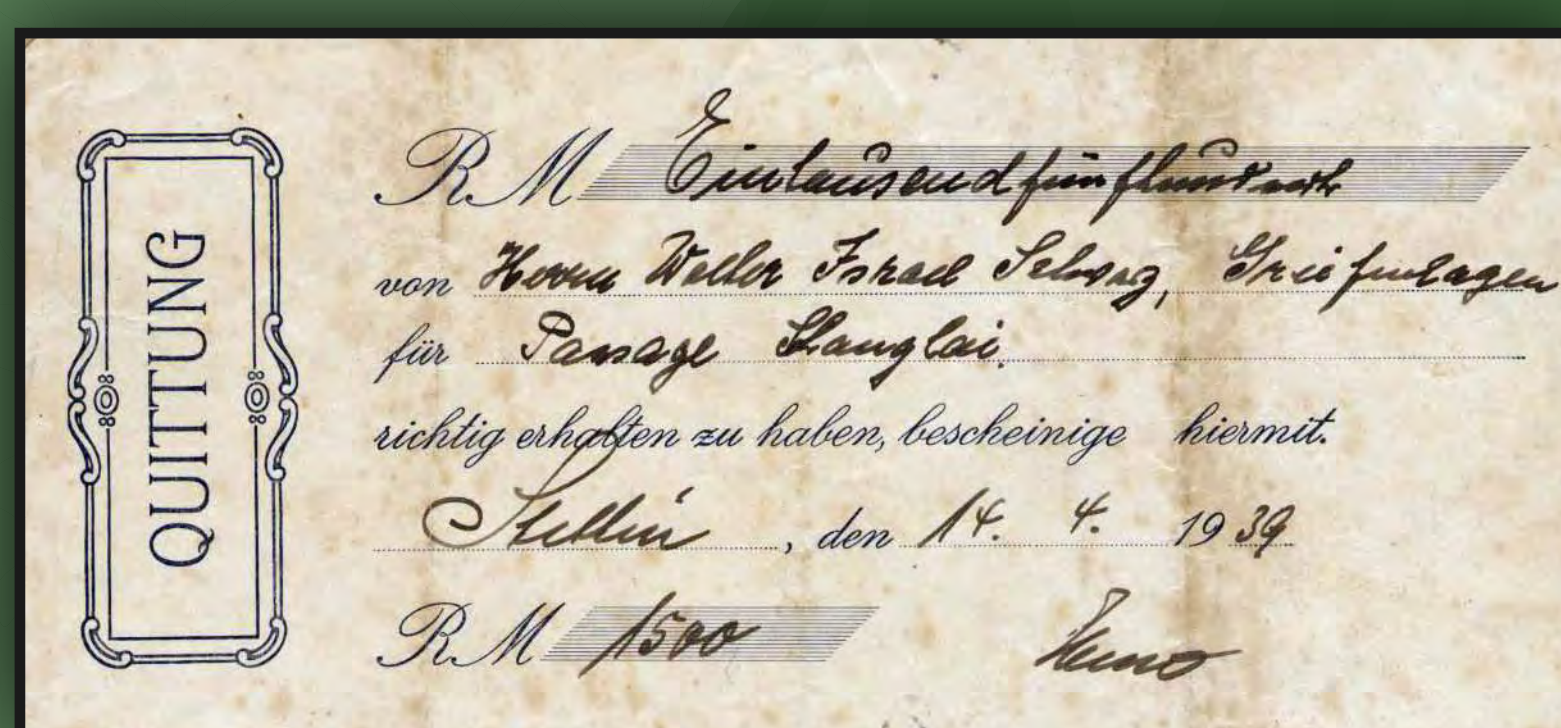 QUITTUNG
RM Eintausendfünfhundert
von Herrn Walter Israel Schwarz, Greifenhagen
für Passage Shanghai.
richtig erhalten zu haben, bescheinige hiermit.
Stettin, den 14. 4. 1939
RM 1500